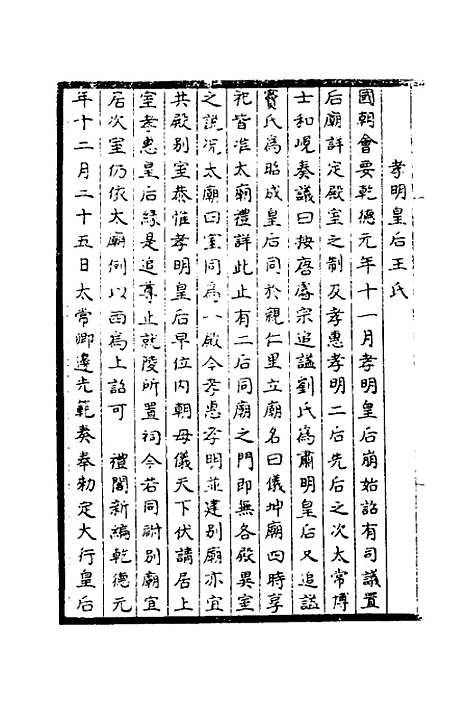 孝明皇后王氏
國朝會要乾德元年十一月孝明皇后崩始詔有司議置
后廟詳定殿室之制及孝惠孝明二后先后之次太常博
士和峴奏議曰按唐睿宗追謚劉氏為肅明皇后又追謚
竇氏為昭成皇后同於親仁里立廟名曰儀坤廟四時享
祀皆准太廟禮詳此止有二后同廟之門即無各殿異室
之説况太廟曰室同為一殿今孝惠孝明並建别廟亦宜
共殿别室恭惟孝明皇后早位内朝母儀天下伏請居上
室孝惠皇后緣是追尊止就陵所置祠今若同祔别廟宜
居次室仍依太廟例以西為上詔可　禮閣新編乾德元
年十二月二十五日太常卿邊光範奏奉勅定大行皇后